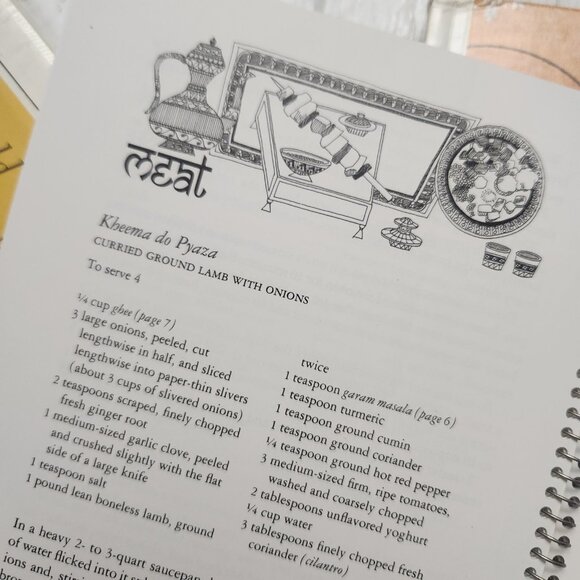 meat
Kheema do Pyaza
CURRIED GROUND LAMB WITH ONIONS
To serve 4
¼ cup ghee (page 7)
3 large onions, peeled, cut
lengthwise in half, and sliced
lengthwise into paper-thin slivers
(about 3 cups of slivered onions)
2 teaspoons scraped, finely chopped
fresh ginger root
1 medium-sized garlic clove, peeled
and crushed slightly with the flat
side of a large knife
1 teaspoon salt
1 pound lean boneless lamb, ground
twice
1 teaspoon garam masala (page 6)
1 teaspoon turmeric
1 teaspoon ground cumin
1 teaspoon ground coriander
¼ teaspoon ground hot red pepper
3 medium-sized firm, ripe tomatoes,
washed and coarsely chopped
2 tablespoons unflavored yoghurt
¼ cup water
3 tablespoons finely chopped fresh
coriander (cilantro)
In a heavy 2- to 3-quart saucepan
of water flicked into it
ions and,